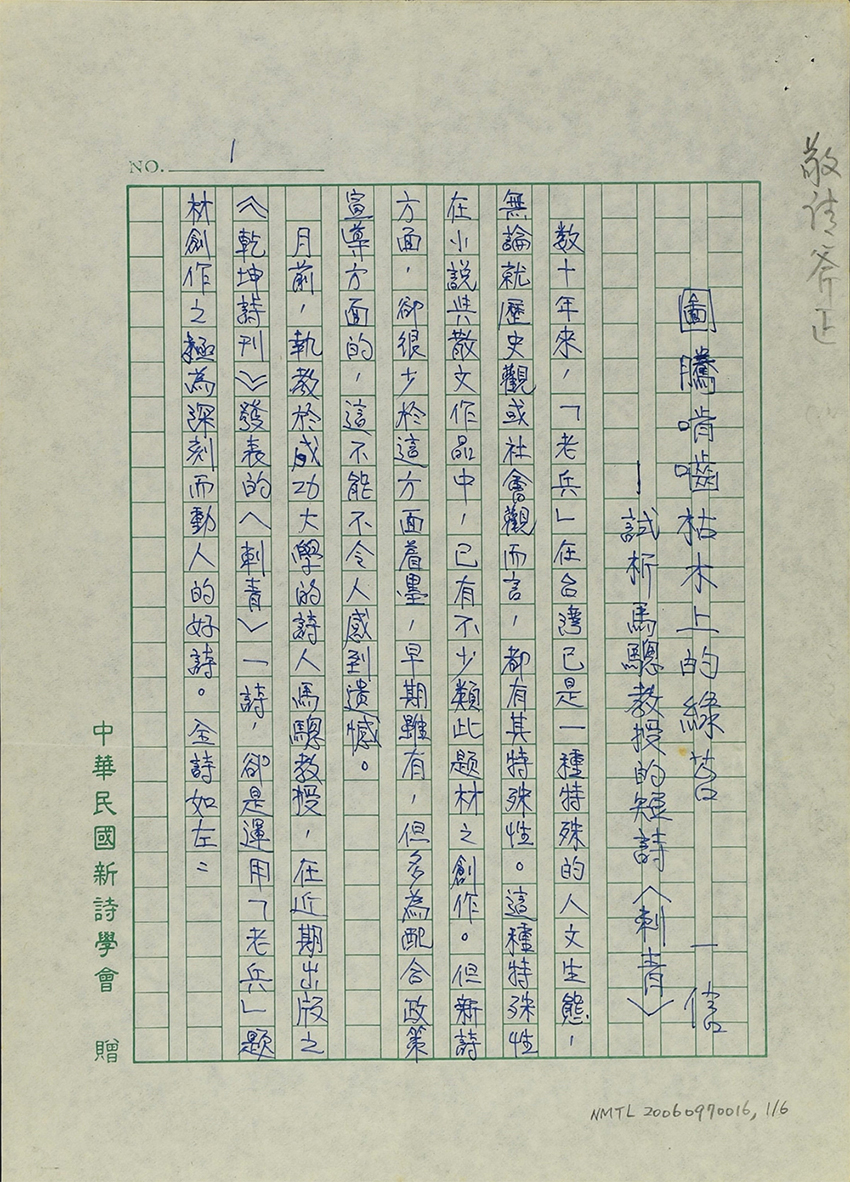 敬請斧正
NO. 1
圖騰啃嚙枯木上的綠苔　一信
—試析馬驄教授的短詩〈刺青〉
数十年來，「老兵」在台灣已是一種特殊的人文生態，
無論就歷史觀或社會觀而言，都有其特殊性。這種特殊性
在小說與散文作品中，已有不少類此題材之創作。但新詩
方面，卻很少於這方面着墨，早期雖有，但多為配合政策
宣導方面的，這不能不令人感到遺憾。
月前，執教於成功大學的詩人馬驄教授，在近期出版之
《乾坤詩刊》發表的〈刺青〉一詩，卻是運用「老兵」題
材創作之極為深刻而動人的好詩。全詩如左：
中華民國新詩學會　贈
NMTL 20060970016, 1/6